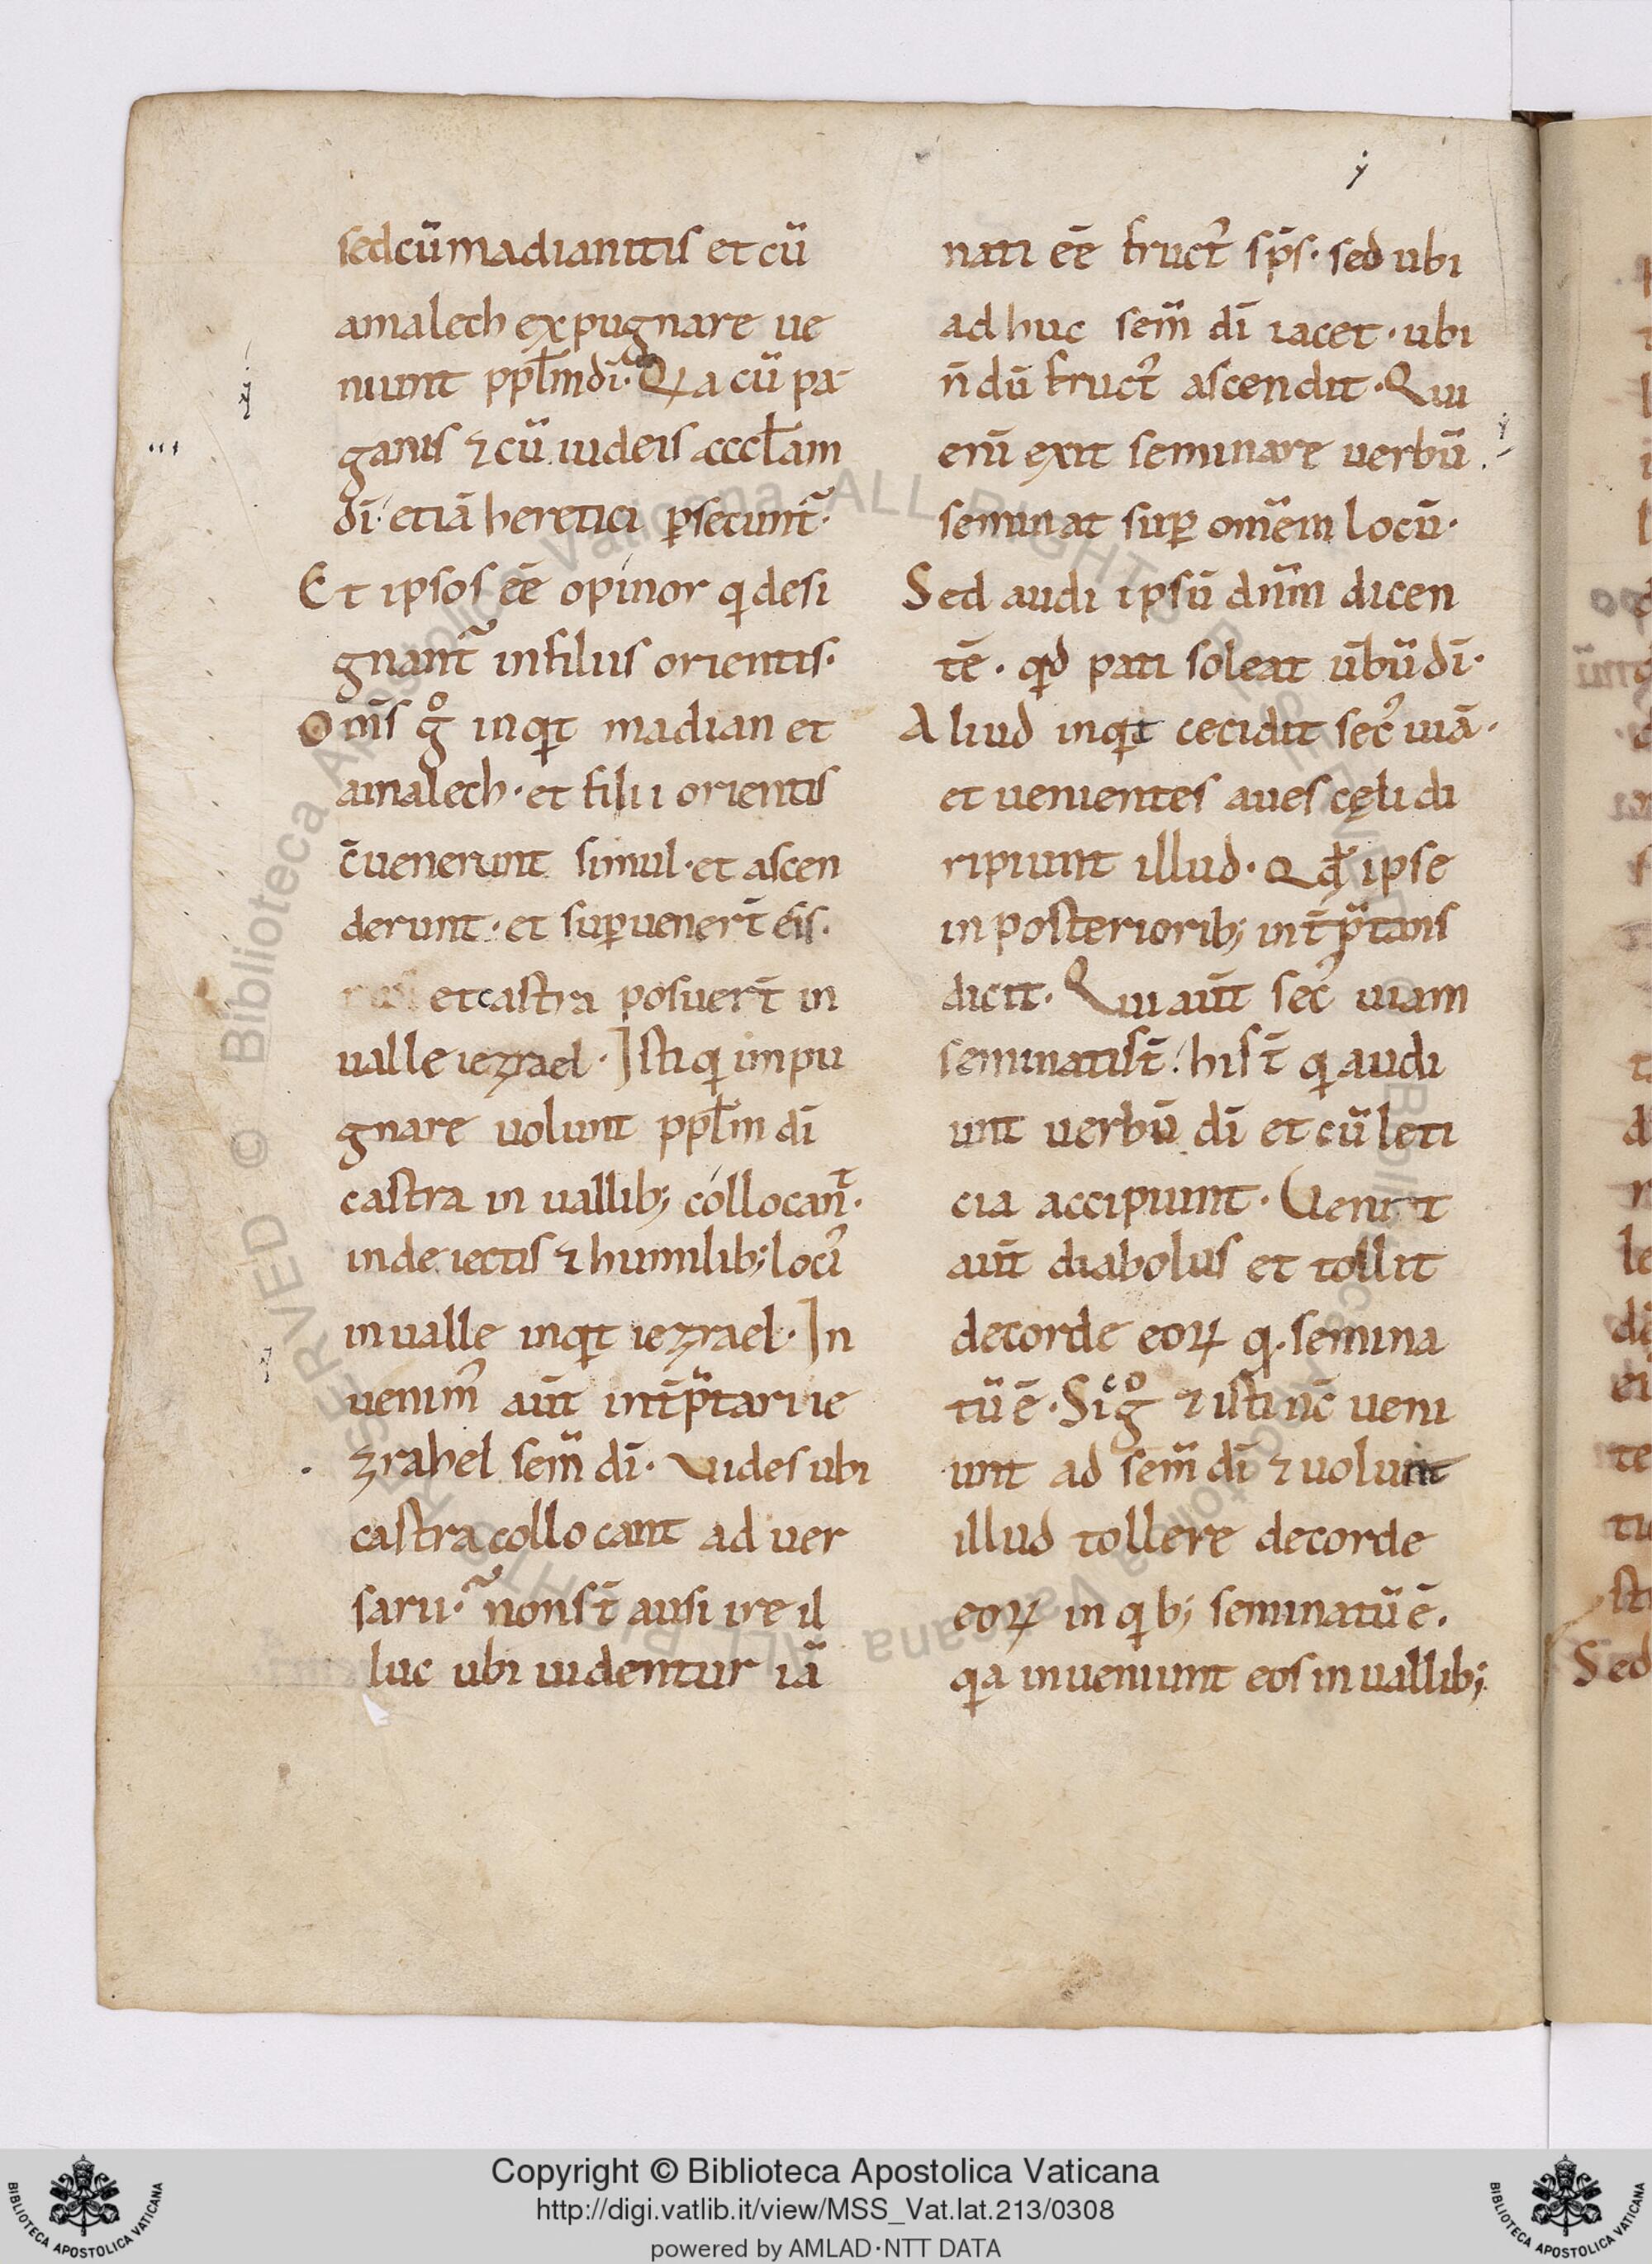 ẏ
sedcū madianitis et cū
amalech expugnare ue
niunt pplm̄ dī. Qa cū pa
ganis ⁊ cū iudeis ęccl̄am
dī. etiā heretici ꝑsecunt̄.
Et ipsos eē opinor q desi
gnant̄ in filiis orientis.
Om̄s gͦ inqͥt madian et
amalech. et filii orientis
c̄uenerunt simul. et ascen
derunt. et suꝑuener̄t eis.
et castra posuer̄t in
ualle iezrael. Isti q impu
gnare uolunt pplm̄ dī
castra in uallib; collocan̄t.
in deiectis ⁊ humilib; locˀ
in ualle inqͥt iezrael. In
uenimˀ aūt int̄p̄tari ie
zrahel sem̄ dī. Vides ubi
castra collocant aduer
sarii. non st̄ ausi ire il
luc ubi uidentur iā
nati eē fruct̄ˀ sp̄s. sed ubi
ad huc sem̄ dī iacet. ubi
n̄dū fruct̄ˀ ascendit. Qui
enī exiit seminare uerbū
seminat suꝑ omēm locū.
Sed audi ipsū dn̄m dicen
tē. qd pati soleat ūbū dī.
Aliud inqͥt cecidit sec̄ˀ uiā.
et uenientes aues cęli di
ripiunt illud. Qd ipse
in posteriorib; int̄p̄tans
dicit. Qui aūt sec̄ˀ uiam
seminati st̄. hi st̄ q audi
unt uerbū dī et cū leti
cia accipiunt. Uenit
aūt diabolus et tollit
de corde eoꝝ q. semina
tū ē. Sic gͦ ⁊ isti nc̄ ueni
unt ad sem̄ dī ⁊ uolunt
illud tollere de corde
eoꝝ in qb; seminatū ē.
qa inueniunt eos in uallib;
Sed
© Biblioteca Apostolica Vaticana ALL RIGHTS RESERVED
Copyright © Biblioteca Apostolica Vaticana
http://digi.vatlib.it/view/MSS_Vat.lat.213/0308
powered by AMLAD·NTT DATA
BIBLIOTECA APOSTOLICA VATICANA
BIBLIOTECA APOSTOLICA VATICANA